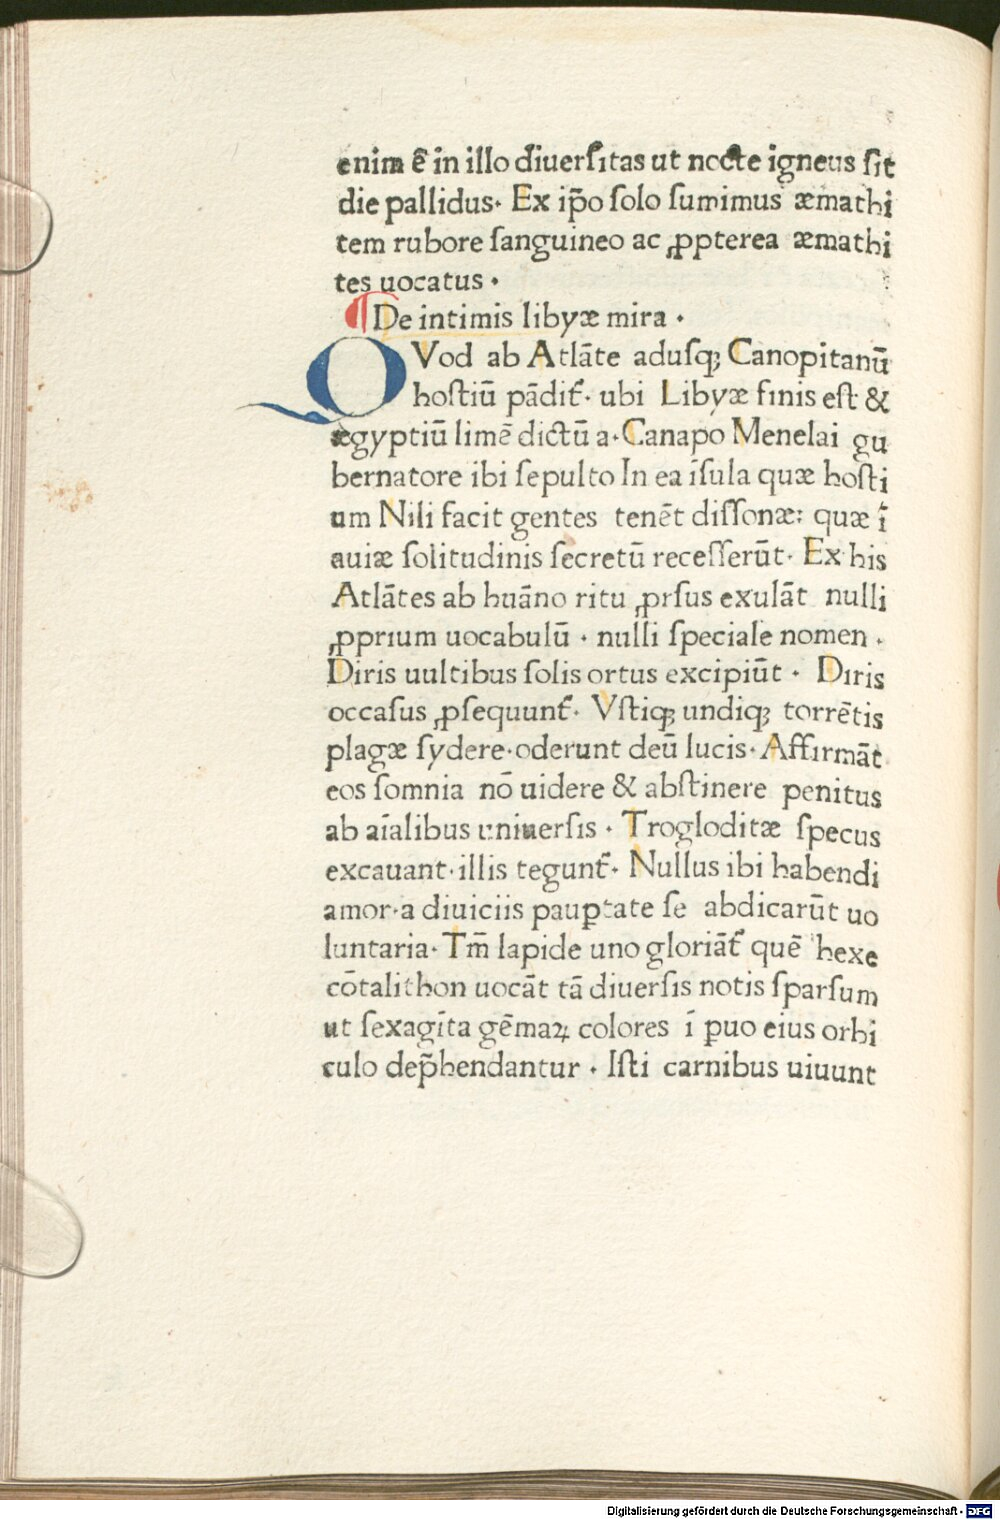 enim ē in illo diuerſitas ut nocte igneus ſit
die pallidus· Ex ip̄o ſolo ſumimus æmathi
tem rubore ſanguineo ac ꝓpterea æmathi
tes uocatus ·
¶ De intimis libyæ mira ·
QVod ab Atlāte aduſqꝫ Canopitanū
hoſtiū pādit᷑· ubi Libyæ finis eſt &
ægyptiū limē dictū a· Canapo Menelai gu
bernatore ibi ſepulto In ea īſula quæ hoſti
um Nili facit gentes tenēt diſſonæ: quæ ī
auiæ ſolitudinis ſecretū receſſerūt· Ex his
Atlātes ab huāno ritu ꝓrſus exulāt nulli
ꝓprium uocabulū · nulli ſpeciale nomen ·
Diris uultibus ſolis ortus excipiūt · Diris
occaſus ꝓſequunt᷑· Vſtiqꝫ undiqꝫ torrētis
plagæ ſydere·oderunt deū lucis· Affirmāt
eos ſomnia nō uidere & abſtinere penitus
ab aīalibus uniuerſis · Trogloditæ ſpecus
excauant·illis tegunt᷑· Nullus ibi habendi
amor·a diuiciis pauꝑtate ſe abdicarūt uo
luntaria· Tm̄ lapide uno gloriāt᷑ quē hexe
cōtalithon uocāt tā diuerſis notis ſparſum
ut ſexagīta gēmaꝝ colores ī ꝑuo eius orbi
culo dep̄hendantur · Iſti carnibus uiuunt
Digitalisierung gefördert durch die Deutsche Forschungsgemeinschaft - DFG